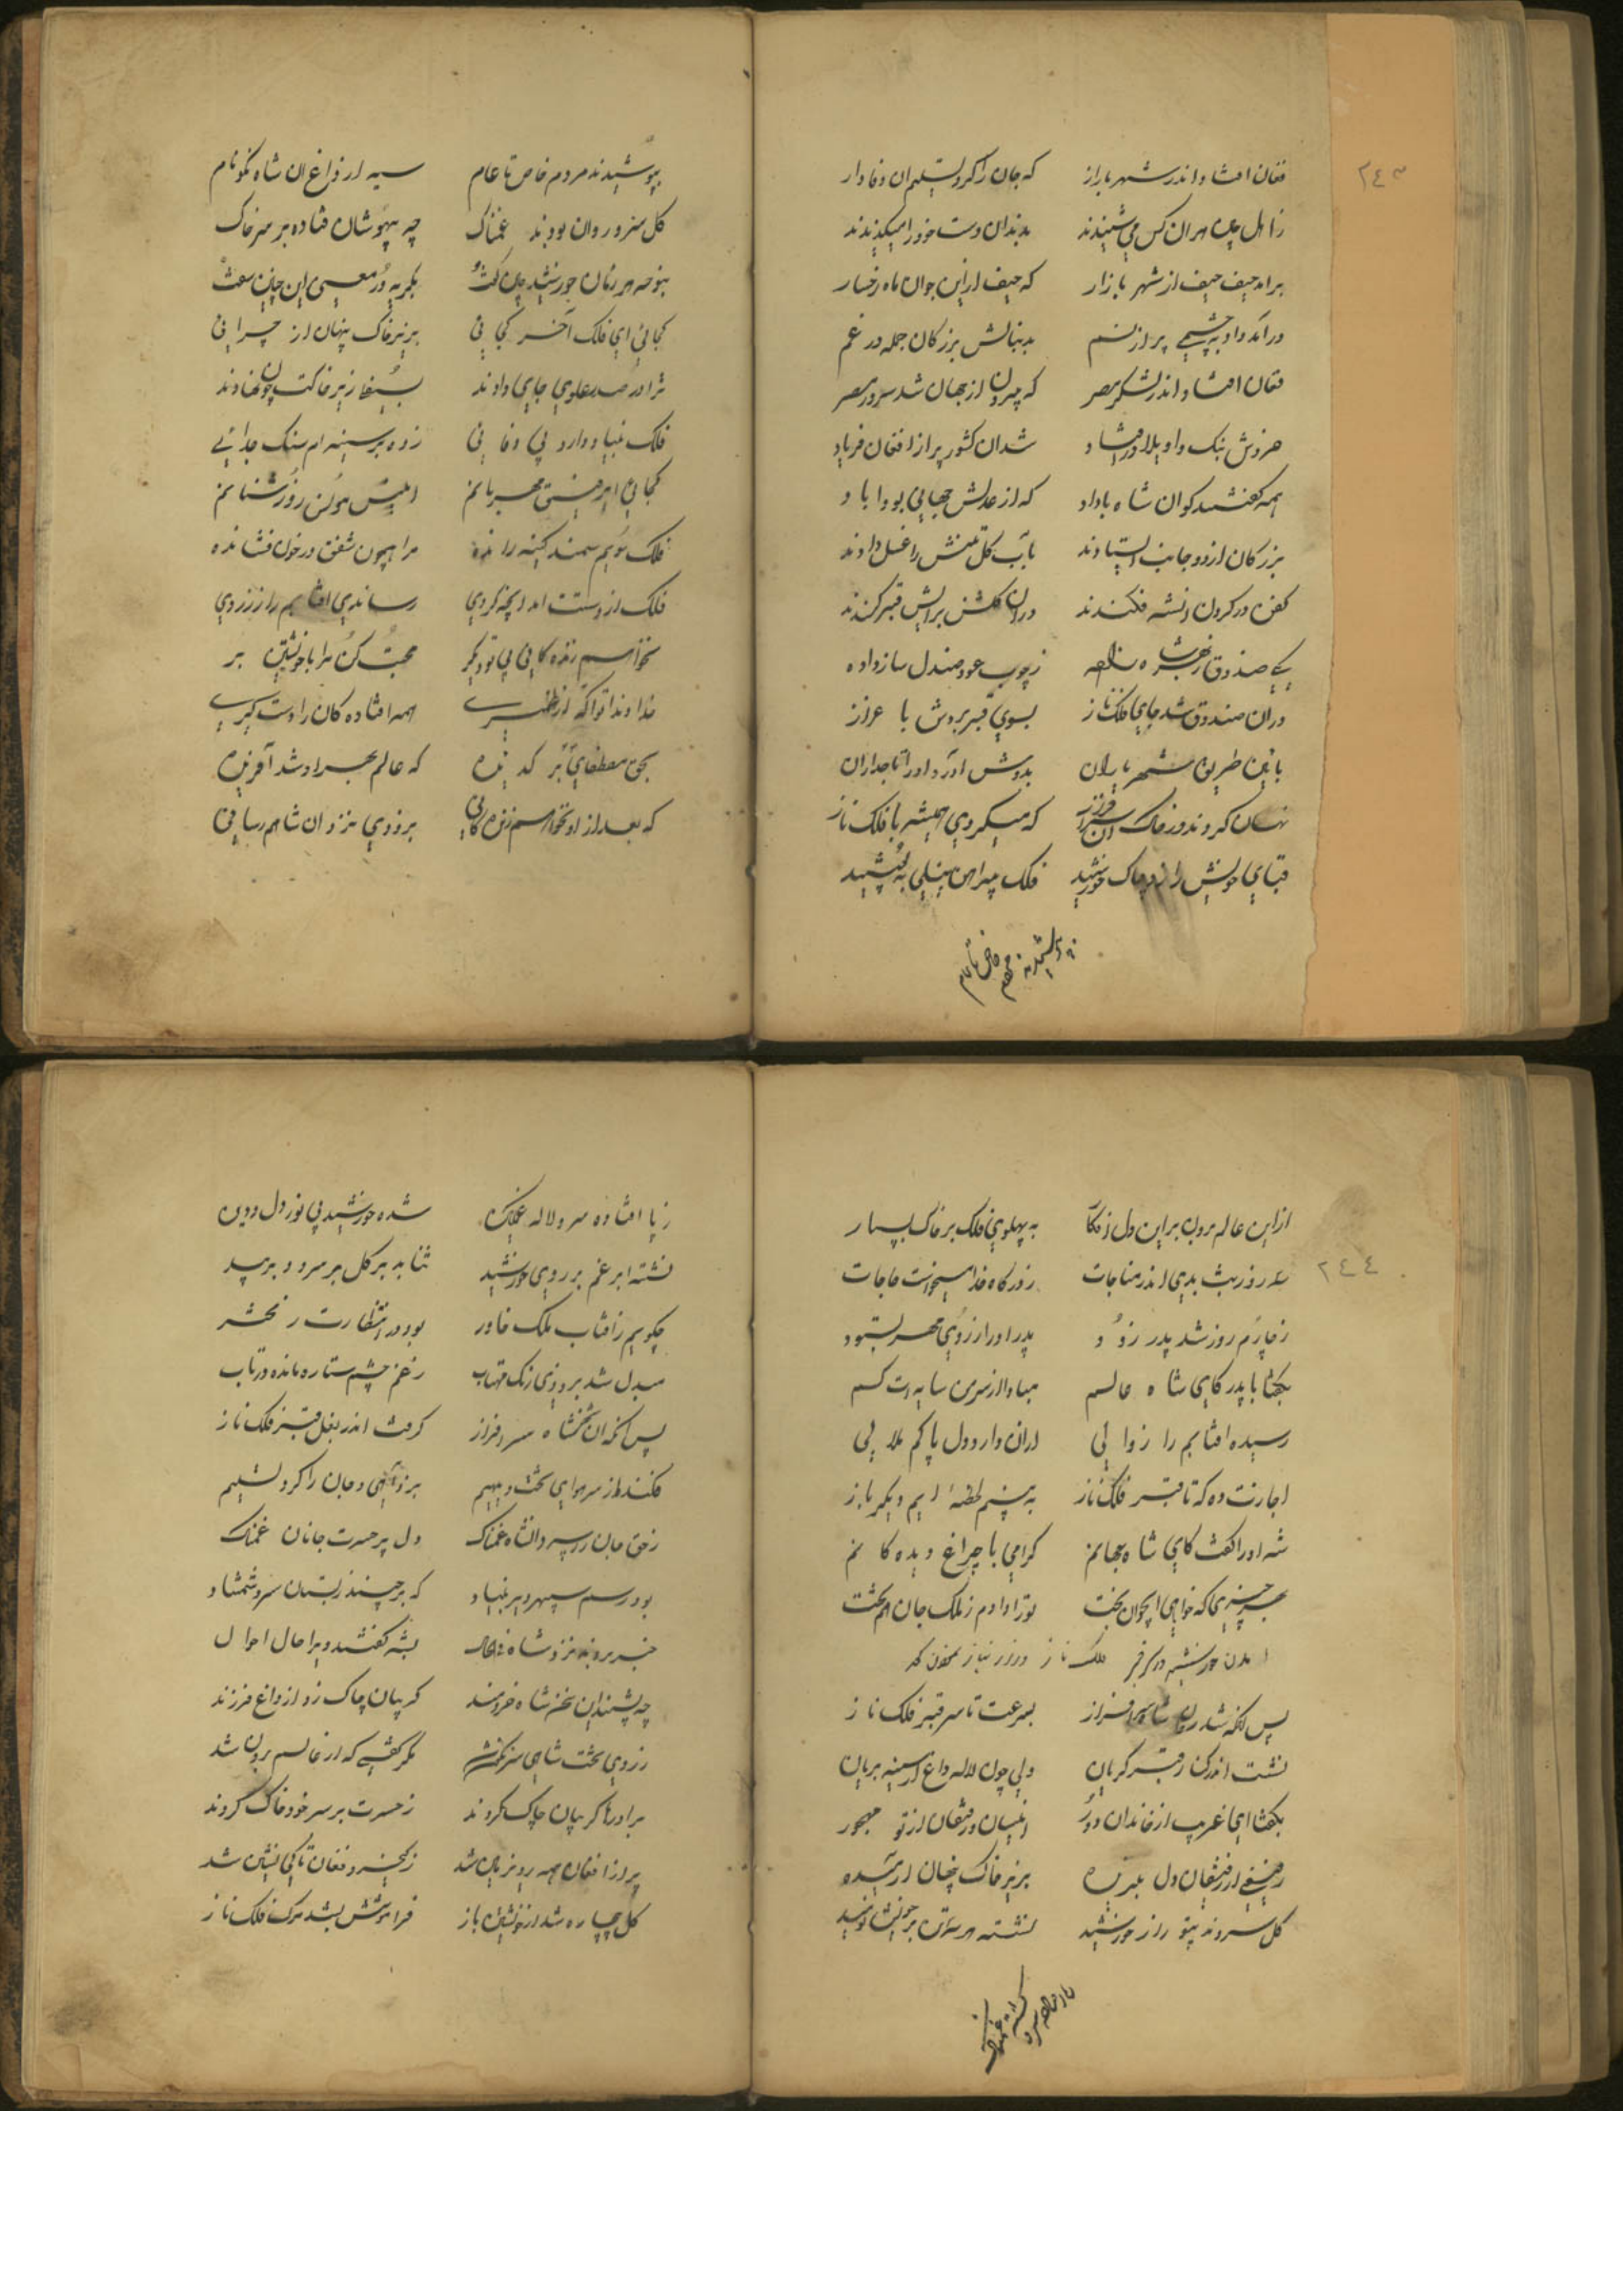 ۲٤۳
فغان افتاد اندر شهر بازار که جان را کرد تسلیم ان وفادار
بدندان دست خود را میکزیدند
برامد حیف حیف از شهر بازار که حیف از این جوان ماه رخسار
درآمد داو به چشمی پر از نم بدنبالش بزرکان جمله در غم
فغان افتاد اندر لشکر مصر که بیرون از جهان شد سرور مصر
خروش بنک واویلا درافتاد شد ان کشور پر از افغان فریاد
همه کفتند کو ان شاه باداد که از عدلش جهانی بود اباد
بزرکان از دو جانب ایستادند بآب کل تنش را غسل دادند
کفن در کردن انشه فکندند دران کلشن برایش قبر کندند
یکی صندوق زچوب عود صندل ساز داده
دران صندوق شد جای فلک ناز بسوی قبر بردش با عزاز
باین طریق شهریاران بدوش اورد او را تاجداران
نهان کردند در خاک ان سرافراز که میکردی همیشه با فلک ناز
قبای خویش را زد چاک خورشید فلک پیراهن نیلی بپوشید
بپوشیدند مردم خاص تا عام
بپوشیدند مردم خاص تا عام سیه از داغ ان شاه نکونام
کل سرو روان بودند غمناک چه بیهوشان فتاده بر سر خاک
بنوحه هر زمان خورشید میکفت بکریه در معنی این چنین سفت
کجائی ای فلک آخر کجائی بزیر خاک پنهان از چرائی
ترا در صدر علوی جای دادند بسیفا زیر خاکت چون نهادند
فلک بنیاد دارد بی وفائی زده بر سینه ام سنک جدائی
کجائی ای رفیق مهربانم انیس مونس روز شبانم
فلک سویم سمند کینه رانده مرا همچون شفق در خون فشانده
فلک از دستت امد انچه کردی رساندی افتابم را بزردی
نخواهم زنده کانی بی تو دیکر محبت کن مرا با خویشتن بر
خداوندا تو اکه از ضمیری همه افتاده کان را دست کیری
بحق مصطفای بر کزیده که عالم بهر او شد آفریده
که بعد از او نخواهم زنده کانی بزودی نزد ان شاهم رسانی
۲٤٤
از این عالم برون بر این دل افکار به پهلوی فلک بر خاک بسپار
سه روز شب بدی اندر مناجات ز درکاه خدا میخواست حاجات
زچارم روز شد پدر زود پدر او را ز روی مهر بستود
بکفتا با پدر کای شاه عالم مبادا از سرم سایه ات کم
رسیده افتابم را زوالی ازان دارد دل پاکم ملالی
اجازت ده که تا قبر فلک ناز به بینم لحظهٔ ایم دیکر باز
شه او را کفت کای شاه جهانم کرامی با چراغ دیده کانم
بهر چیزی که خواهی ای جوان بخت تو را دادم ز ملک جان هم تخت
امدن خورشید در سر قبر ملک ناز و زار نیاز نمودن کوید
پس انکه شد روان شاه سرافراز بسرعت تا سر قبر فلک ناز
نشست اندر کنار قبر کریان ولی چون لاله داغ از سینه بریان
بکفتا ای غریب از خاندان دور انیسان رفیقان از تو مهجور
رفیقی از رفیقان دل بریده بزیر خاک پنهان ارمیده
کل سروند بیتو زار خورشید نشسته هر سه تن بر خویش نومید
زپا افتاده سرو لاله غمکین شده خورشید بی نور دل و دین
نشسته ابر غم بر روی خورشید نتابد بر کل بر سرو و بر بید
چکویم زافتاب ملک خاور بود در انتظارت روز محشر
مبدل شد بزردی رنک مهتاب زغم چشم ستاره مانده در تاب
پس انکه ان شهنشاه سرافراز کرفت اندر بغل قبر فلک ناز
فکند از سر هوای تخت دیهیم بزد آهی و جان را کرد تسلیم
بحق جان را سپرد انشاه غمناک دل پر حسرت جانان غمناک
بود رسم سپهر دیر بنیاد که برچیند زبستان سرو شمشاد
خبر بردند نزد شاه بشه کفتند ویرا حال احوال
چه بشنید این سخن شاه خردمند کریبان چاک زد از داغ فرزند
ز روی تخت شاهی سرنکون شد مکر کفتی که از عالم برون شد
برادرها کریبان چاک کردند زحسرت بر سر خود خاک کردند
پر از افغان همه روی زمین شد
کل بیچاره شد از خویشتن باز فراموشش بشد مرک فلک ناز
زپا افتاده سرو لاله غمکین